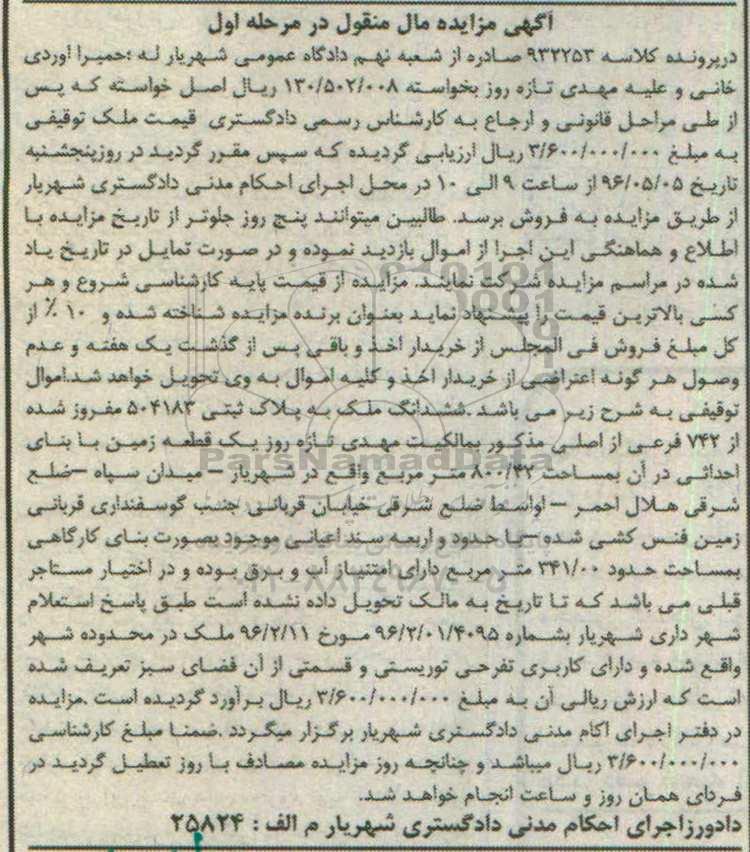 آگهی مزایده مال منقول در مرحله اول
درپرونده کلاسه ۹۳۲۲۵۳ صادره از شعبه نهم دادگاه عمومی شهریار له :حمیرا آوردی
خانی و علیه مهدی تازه روز بخواسته ۱۳۰/۵۰۲/۰۰۸ ریال اصل خواسته که پس
از طی مراحل قانونی و ارجاع به کارشناس رسمی دادگستری قیمت ملک توقیفی
به مبلغ ۳/۶۰۰/۰۰۰/۰۰۰ ریال ارزیابی گردیده که سپس مقرر گردید در روزپنجشنبه
تاریخ ۹۶/۰۵/۰۵ از ساعت ۹ الی ۱۰ در محل اجرای احکام مدنی دادگستری شهریار
از طریق مزایده به فروش برسد. طالبین میتوانند پنج روز جلوتر از تاریخ مزایده با
اطلاع و هماهنگی این اجرا از اموال بازدید نموده و در صورت تمایل در تاریخ یاد
شده در مراسم مزایده شرکت نمایند. مزایده از قیمت پایه کارشناسی شروع و هر
کسی بالاترین قیمت را پیشنهاد نماید بعنوان برنده مزایده شناخته شده و ۱۰ ٪ از
کل مبلغ فروش فی المجلس از خریدار اخذ و باقی پس از گذشت یک هفته و عدم
وصول هر گونه اعتراضی از خریدار اخذ و کلیه اموال به وی تحویل خواهد شد.اموال
توقیفی به شرح زیر می باشد .ششدانگ ملک به پلاک ثبتی ۵۰۴۱۸۳ مفروز شده
از ۷۴۲ فرعی از اصلی مذکور بمالکیت مهدی تازه روز یک قطعه زمین با بنای
احداثی در آن بمساحت ۸۰۰/۴۲ متر مربع واقع در شهریار – میدان سپاه –ضلع
شرقی هلال احمر – اواسط ضلع شرقی خیابان قربانی جنب گوسفنداری قربانی
زمین فنس کشی شده –با حدود و اربعه سند اعیانی موجود بصورت بنای کارگاهی
بمساحت حدود ۳۴۱/۰۰ متر مربع دارای امتیاز آب و برق بوده و در اختیار مستاجر
قبلی می باشد که تا تاریخ به مالک تحویل داده نشده است طبق پاسخ استعلام
شهر داری شهریار بشماره ۹۶/۲/۰۱/۴۰۹۵ مورخ ۹۶/۲/۱۱ ملک در محدوده شهر
واقع شده و دارای کاربری تفرحی توریستی و قسمتی از آن فضای سبز تعریف شده
است که ارزش ریالی آن به مبلغ ۳/۶۰۰/۰۰۰/۰۰۰ ریال برآورد گردیده است .مزایده
در دفتر اجرای اکام مدنی دادگستری شهریار برگزار میگردد .ضمنا مبلغ کارشناسی
۳/۶۰۰/۰۰۰/۰۰۰ ریال میباشد و چنانچه روز مزایده مصادف با روز تعطیل گردید در
فردای همان روز و ساعت انجام خواهد شد.
دادورزاجرای احکام مدنی دادگستری شهریار م الف : ۲۵۸۲۴
ParsNamadData